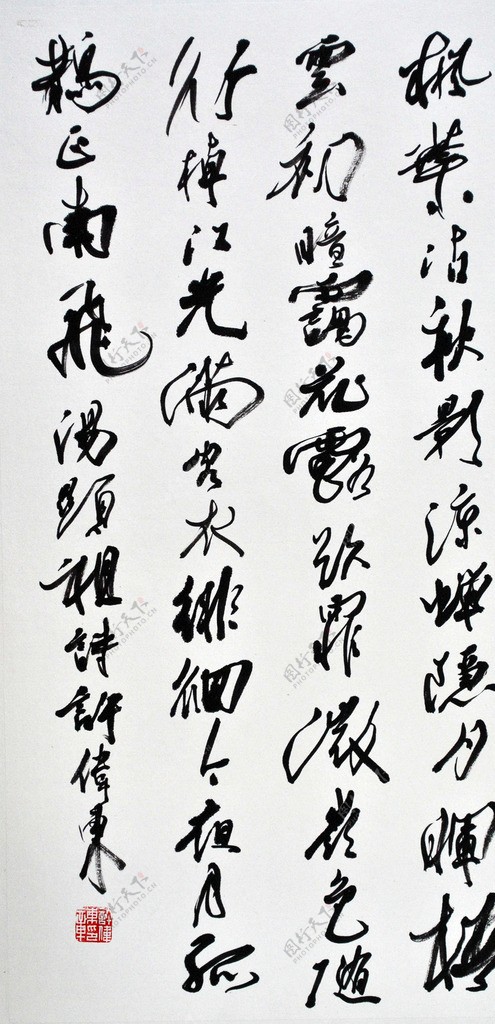 楓葉沾秋影涼蟬隱夕暉梧
雲初暗靄花露欲霏微嶺色隨
行棹江光滿客衣徘徊今夜月孤
鵲正南飛湯顯祖詩許偉東
图行天下 PHOTOPHOTO.CN